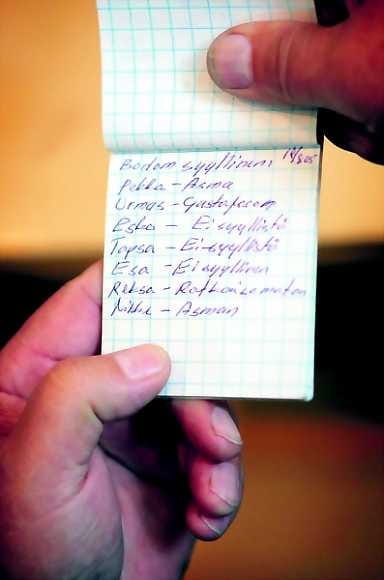 Bodom syyllinen 12/8 05
Pekka - Asma
Urmas - Gustafsson
Esko - Ei syyllistä
Topsa - Ei syyllistä
Esa - Ei syyllinen
Reksa - Ratkaisematon
Nikke - Asman